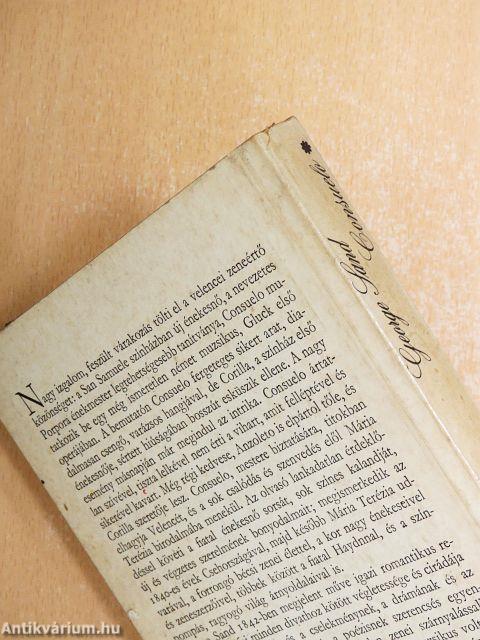 George Sand
Consuelo *
Nagy izgalom, feszült várakozás tölti el a velencei zeneértő
közönséget: a San Samuele színházban új énekesnő, a nevezetes
Porpora énekmester legtehetségesebb tanítványa, Consuelo mu-
tatkozik be egy még ismeretlen német muzsikus, Gluck első
operájában. A bemutatón Consuelo fergeteges sikert arat, dia-
dalmasan csengő, varázsos hangjával, de Corilla, a színház első
énekesnője, sértett hiúságában bosszút esküszik ellene. A nagy
esemény másnapján már megindul az intrika. Consuelo ártat-
lan szívével, tiszta lelkével nem érti a vihart, amit felléptével és
sikerével kavar. Még régi kedvese, Anzoleto is elpártol tőle, és
Corilla szeretője lesz. Consuelo, mestere biztatására, titokban
elhagyja Velencét, és a sok csalódás és szenvedés elől Mária
Terézia birodalmába menekül. Az olvasó lankadatlan érdeklő-
déssel követi a fiatal énekesnő sorsát, sok színes kalandját,
új és végzetes szerelmének bonyodalmait; megismerkedik az
1840-es évek Csehországával, majd később Mária Terézia ud-
varával, a forrongó bécsi zenei élettel, a kor nagy énekeseivel
és zeneszerzőivel, többek között a fiatal Haydnnal, és a szín-
pompás, ragyogó világ árnyoldalaival is.
Sand 1842-ben megjelent műve igazi romantikus re-
minden divathoz kötött végletessége és cirádája
a cselekménynek, a drámának és az
poézisnek szerencsés egyen-
zeni szárnyalással
Antikvárium.hu